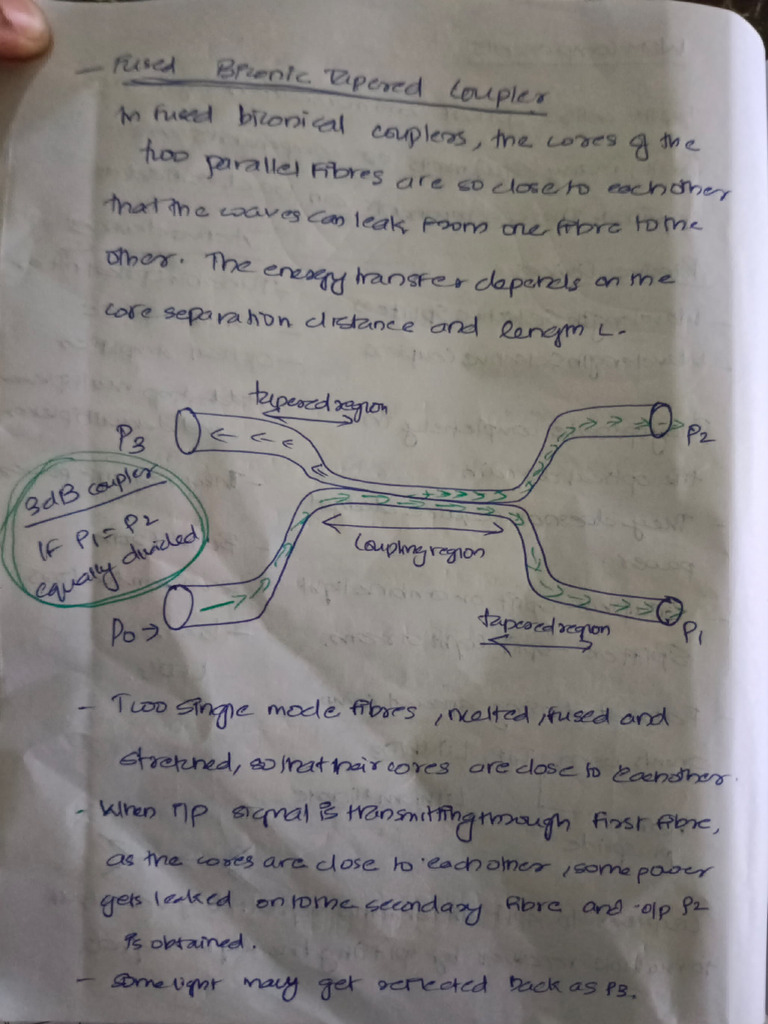 - Fused Biconic Tapered Coupler
In fused biconical couplers, the cores of the
two parallel fibres are so close to each other
that the waves can leak from one fibre to the
other. The energy transfer depends on the
core separation distance and length L.
tapered region
P3
P2
3dB coupler
If P1 = P2
equally divided
Coupling region
P0 →
tapered region
P1
- Two single mode fibres, melted, fused and
stretched, so that their cores are close to each other.
- When I/P signal is transmitting through first fibre,
as the cores are close to each other, some power
gets leaked on to the secondary fibre and o/p P2
is obtained.
- Some light may get reflected back as P3.